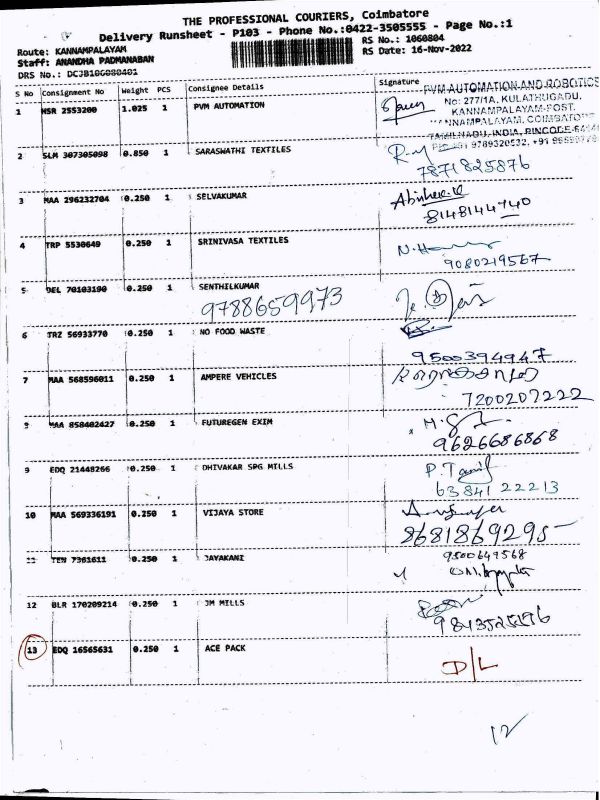 THE PROFESSIONAL COURIERS, Coimbatore
Delivery Runsheet - P103 - Phone No.:0422-3505555 - Page No.:1
Route: KANNAMPALAYAM
RS No.: 1060804
Staff: ANANDHA PADMANABAN
RS Date: 16-Nov-2022
DRS No.: DCJB1060080401
S No Consignment No Weight PCS Consignee Details Signature
PVM AUTOMATION AND ROBOTICS
1 HSR 2553200 1.025 1 PVM AUTOMATION
No: 277/1A, KULATHUGADU,
KANNAMPALAYAM-POST,
TAMILNADU, INDIA, PINCODE-
2 SLM 307305098 0.850 1 SARASWATHI TEXTILES
7871825876
3 MAA 296232704 0.250 1 SELVAKUMAR
8148144740
4 TRP 5530649 0.250 1 SRINIVASA TEXTILES
9080219567
5 DEL 70103190 0.250 1 SENTHILKUMAR
9788659973
6 TRZ 56933770 0.250 1 NO FOOD WASTE
9500394947
7 MAA 568596011 0.250 1 AMPERE VEHICLES
7200207222
MAA 858402427 0.250 1 FUTUREGEN EXIM
9626686868
9 EDQ 21448266 0.250 1 DHIVAKAR SPG MILLS
63841 22213
10 MAA 569336191 0.250 1 VIJAYA STORE
8681869295
11 TEN 7361611 0.250 1 JAYAKANI
9500649568
12 BLR 170209214 0.250 1 JM MILLS
9843525196
13 EDQ 16565631 0.250 1 ACE PACK
D/L
12